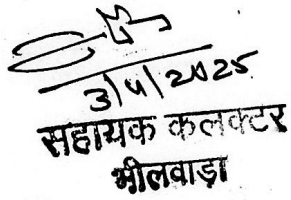 3/4/2025
सहायक कलक्टर
भीलवाड़ा